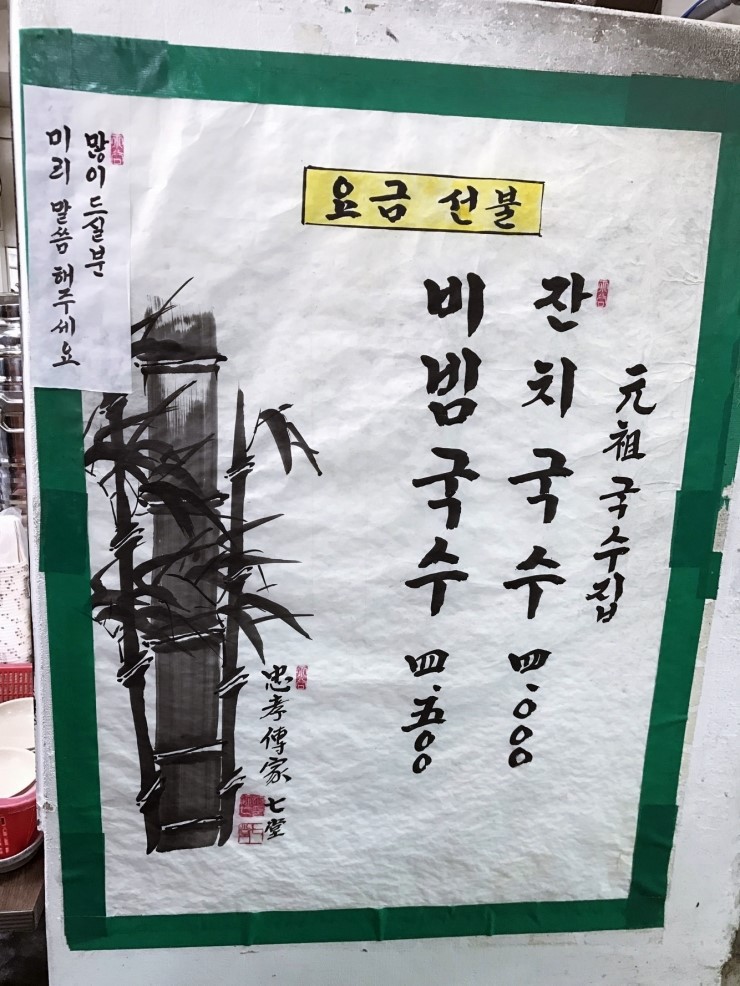 요금 선불
元祖 국수집
잔치국수 四.000
비빔국수 四.五00
많이 드실분
미리 말씀 해주세요
忠孝傳家 七堂